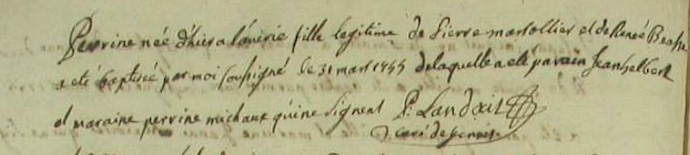 Perrine née d'hier a l'anerie fille legitime de Pierre marsollier et de Reneé
a eté baptisée par moi soussigné le 31 mars 1755 de laquelle a eté parain Jean helbert
et maraine perrine michaux qui ne signent P. Landais
curé de